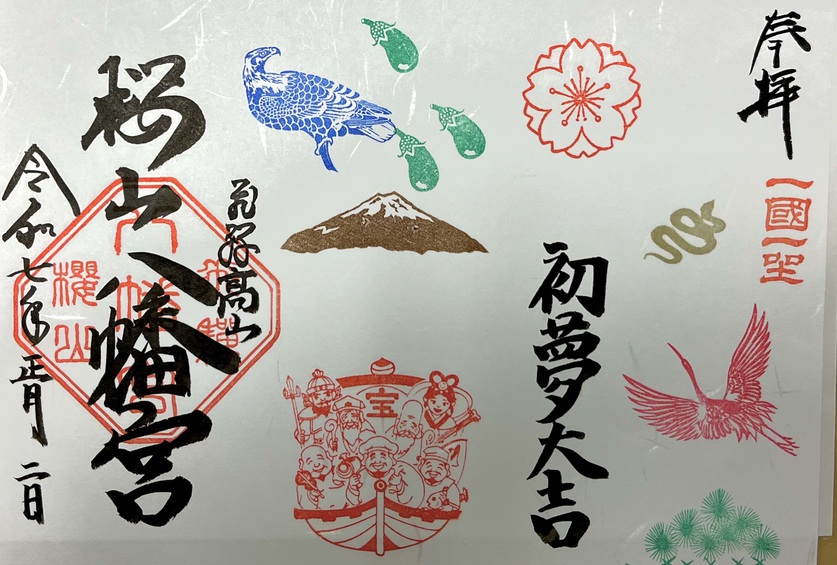 奉拝
一國一
初夢大吉
宝
飛騨高山
桜山八幡宮
櫻山
令和七年正月二日